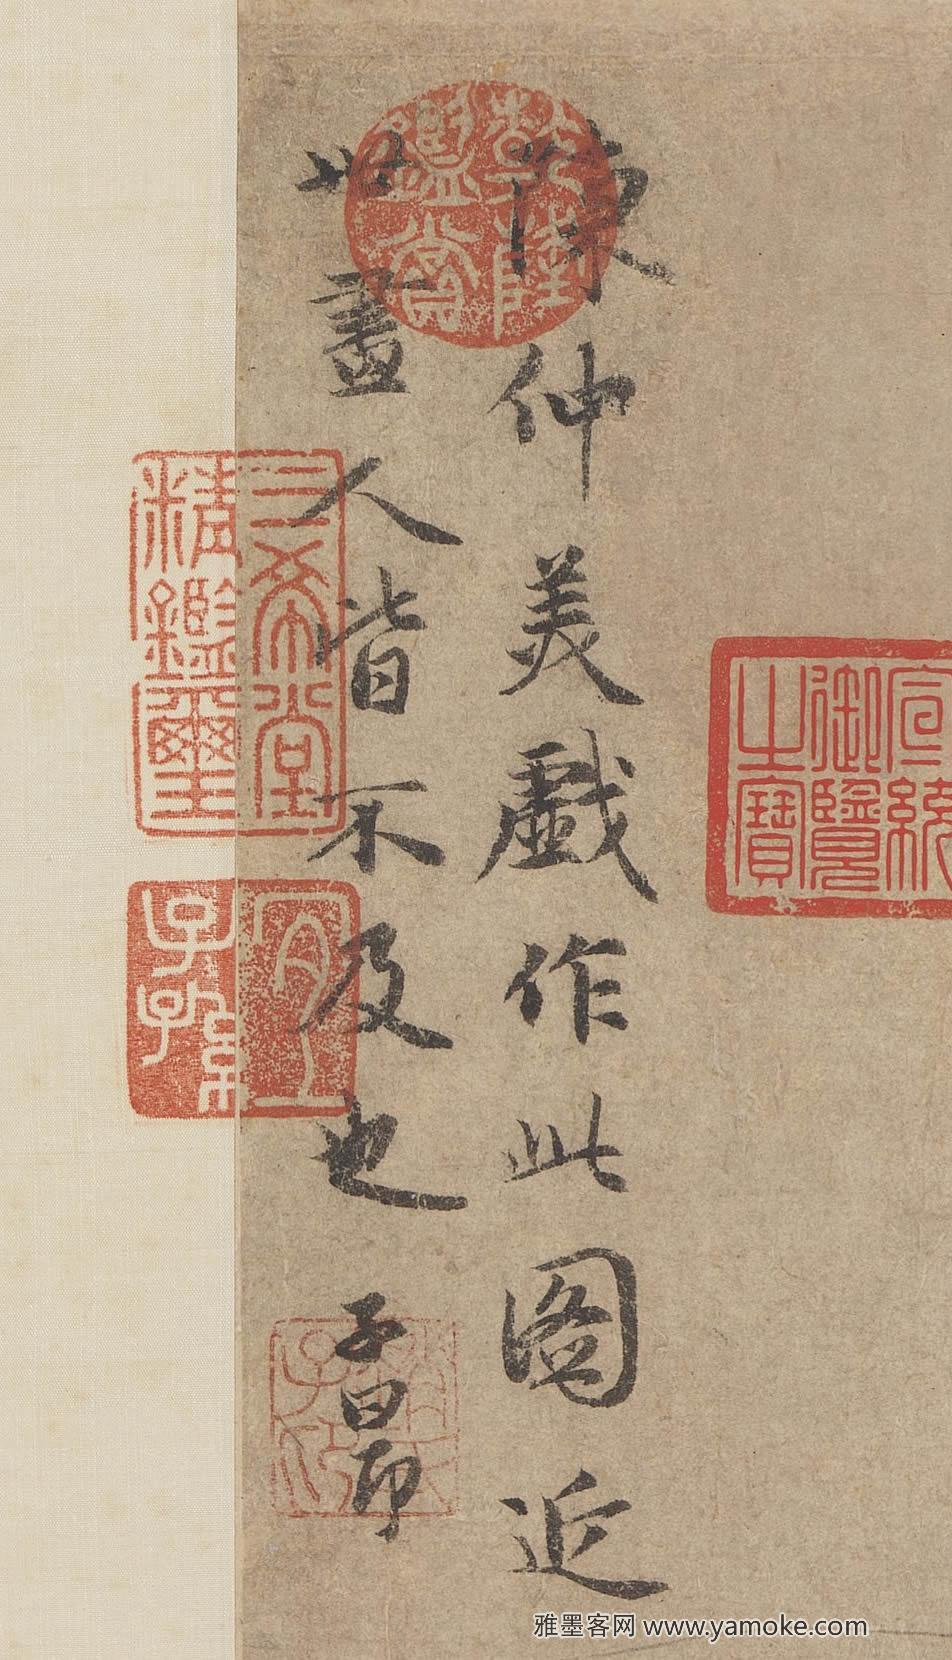 陳仲美戯作此圖近
世畫人皆不及也
子昂
乾隆鑑賞
三希堂精鑑璽
宜子孫
宣統御覽之寶
趙子昂
雅墨客网 www.yamoke.com